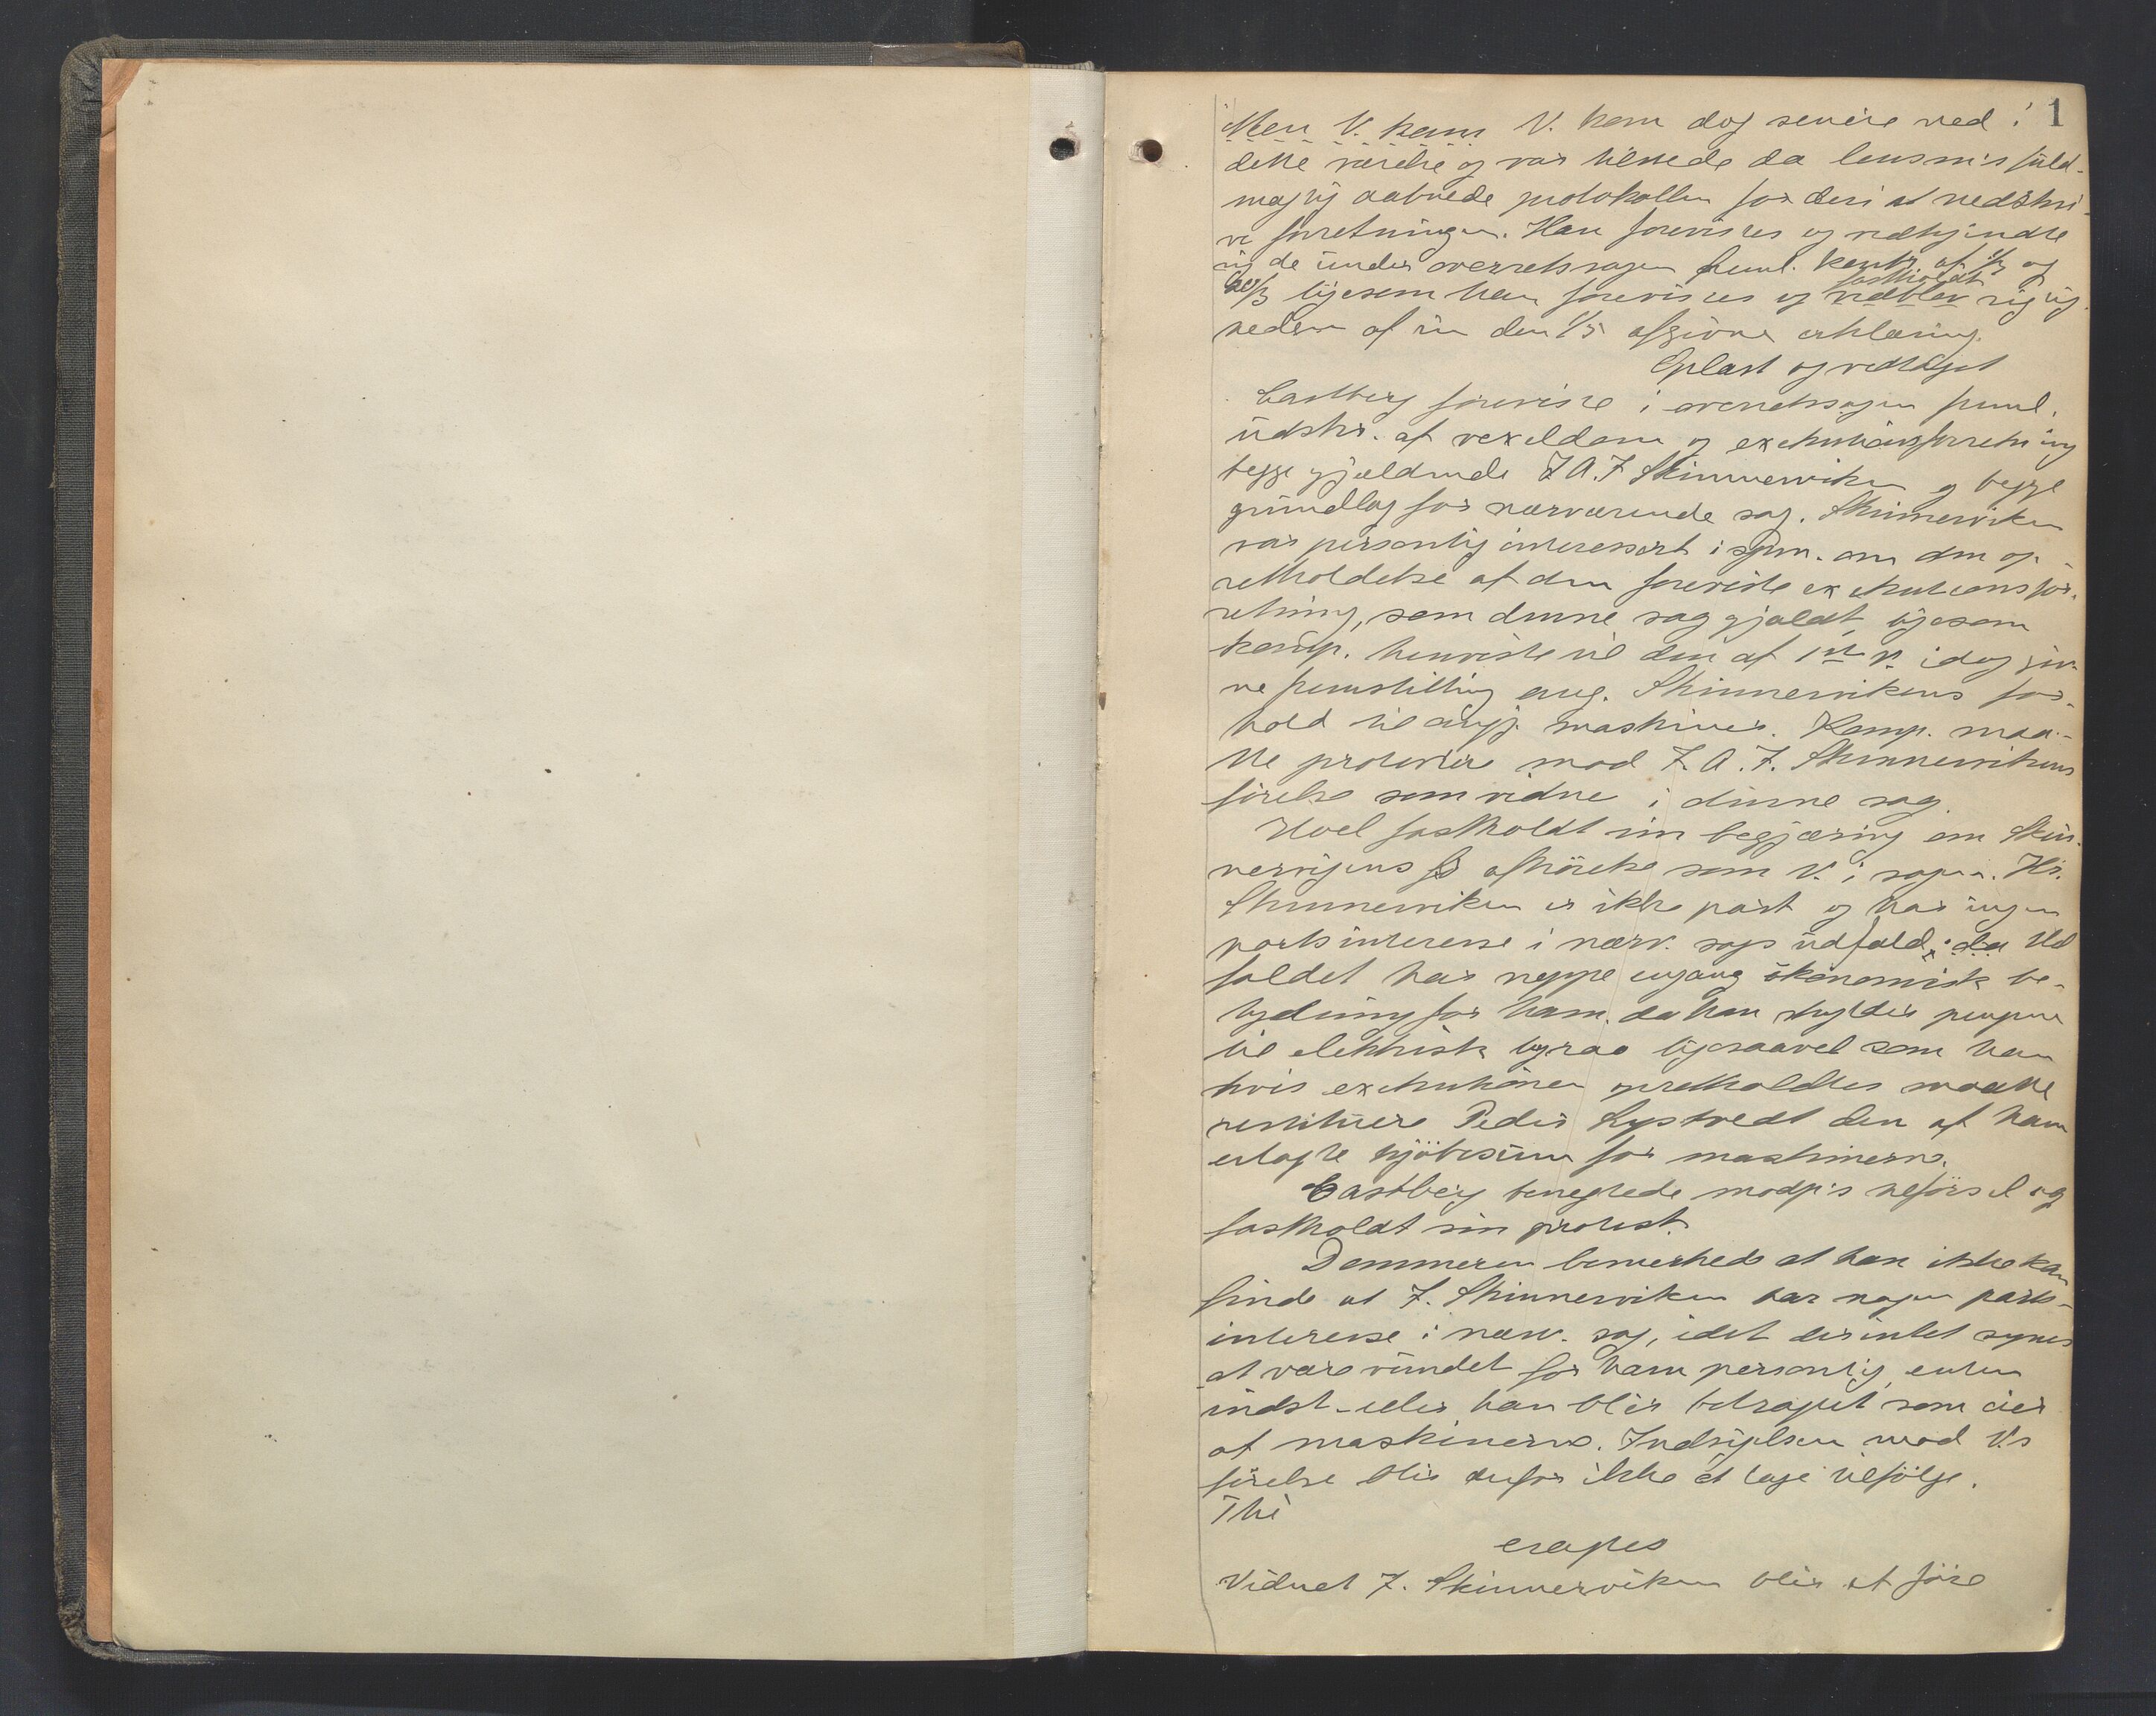 1
Men V. kam V. kom dog senere ned i
dette værelse og var tilstede da lensm's fuld-
mægtig aabnede protokollen for deri at nedskri-
ve forretningen. Han forevistes og vedkjendte
sig de under overretssagen freml. kontr. af 1/3 og
20/3 ligesom han forevistes og vedblev fastholdt rigtig
heden af sin den 1/5 afgivne erklæring.
Oplæst og vedtaget
Castberg foreviste i overretssagen freml.
udskr. af vexeldom og exekutionsforretning
begge gjældende J A. F Skinnerviken og begge
grundlag for nærværende sag. Skinnerviken
var personlig interessert i spm. om den op-
retholdelse af den foreviste exekutionsfor-
retning, som denne sag gjaldt, ligesom
komp. henviste til den af 1ste V. idag giv-
ne fremstilling ang. Skinnervikens for-
hold til omhj. maskiner. Komp. maa-
tte protestere mod J. A. F. Skinnervikens
førelse som vidne i denne sag.
Hoel fastholdt sin begjæring om Skin-
nervigens afhørelse som V. i sagen. Hr.
Skinnerviken er ikke part og har ingen
partsinteresse i nærv. sags udfald; da Ud
faldet har neppe engang økonomisk be-
tydning for ham, da han skylder pengene
til elektrisk byrao ligesaavel som han
hvis exekutionen opretholdtes maatte
restituere Peder Lystvedt den af ham
erlagte kjøbesum for maskinerne.
Castberg benegtede modp's tilførsel og
fastholdt sin protest.
Dommeren bemerkede at han ikke kan
finde at J. Skinnerviken har nogen parts-
interesse i nærv. sag, idet der intet synes
at være vundet for ham personlig, enten
indst. eller han blir betragtet som eier
af maskinerne. Indsigelsen mod V's
førelse blir derfor ikke at tage tilfølge.
Thi
eragtes
Vidnet J. Skinnerviken blir at føre